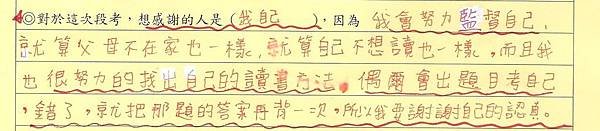 ◎對於這次段考，想感謝的人是(我自己)，因為 我會努力監督自己，
就算父母不在家也一樣，就算自己不想讀也一樣，而且我
也很努力的找出自己的讀書方法。偶爾會出題目考自己
，錯了，就把那題的答案再背一次，所以我要謝謝自己的認真。